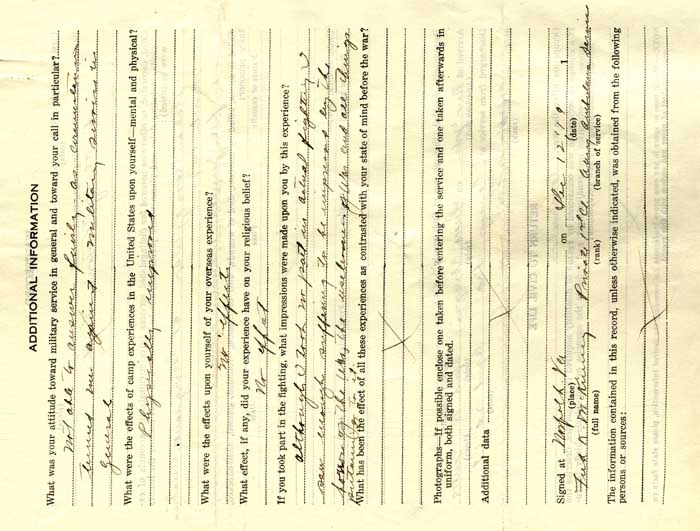 ADDITIONAL INFORMATION
What was your attitude toward military service in general and toward your call in particular?
Not able to answer fairly as circumstances
turned me against military service in
general
What were the effects of camp experiences in the United States upon yourself—mental and physical?
Physically improved
What were the effects upon yourself of your overseas experience?
No effect
What effect, if any, did your experience have on your religious belief?
No effect
If you took part in the fighting, what impressions were made upon you by this experience?
Although I took no part in actual fighting I
saw enough suffering to be impressed by the
horror of the War, the uselessness of War and all things
pertaining to it.
What has been the effect of all these experiences as contrasted with your state of mind before the war?
Photographs—If possible enclose one taken before entering the service and one taken afterwards in
uniform, both signed and dated.
Additional data
Signed at Norfolk Va on Dec 12 '19 1
(place) (date)
Fred Private 1st Cl Army Ambulance Service
(full name) (rank) (branch of service)
The information contained in this record, unless otherwise indicated, was obtained from the following
persons or sources: